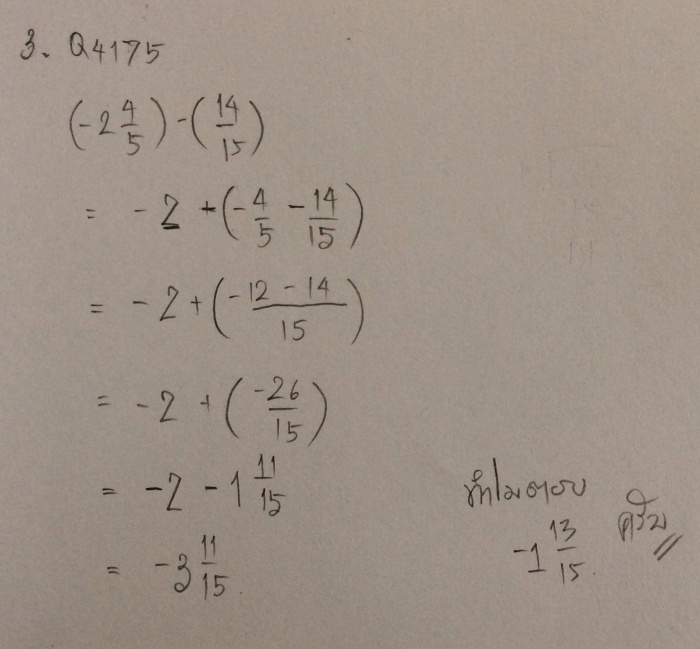 3. Q4175
(-2 4/5) - (14/15)
= -2 + (-4/5 - 14/15)
= -2 + (-12 - 14 / 15)
= -2 + (-26/15)
= -2 - 1 11/15
= -3 11/15
ทำไมตอบ
-1 13/15
ครับ